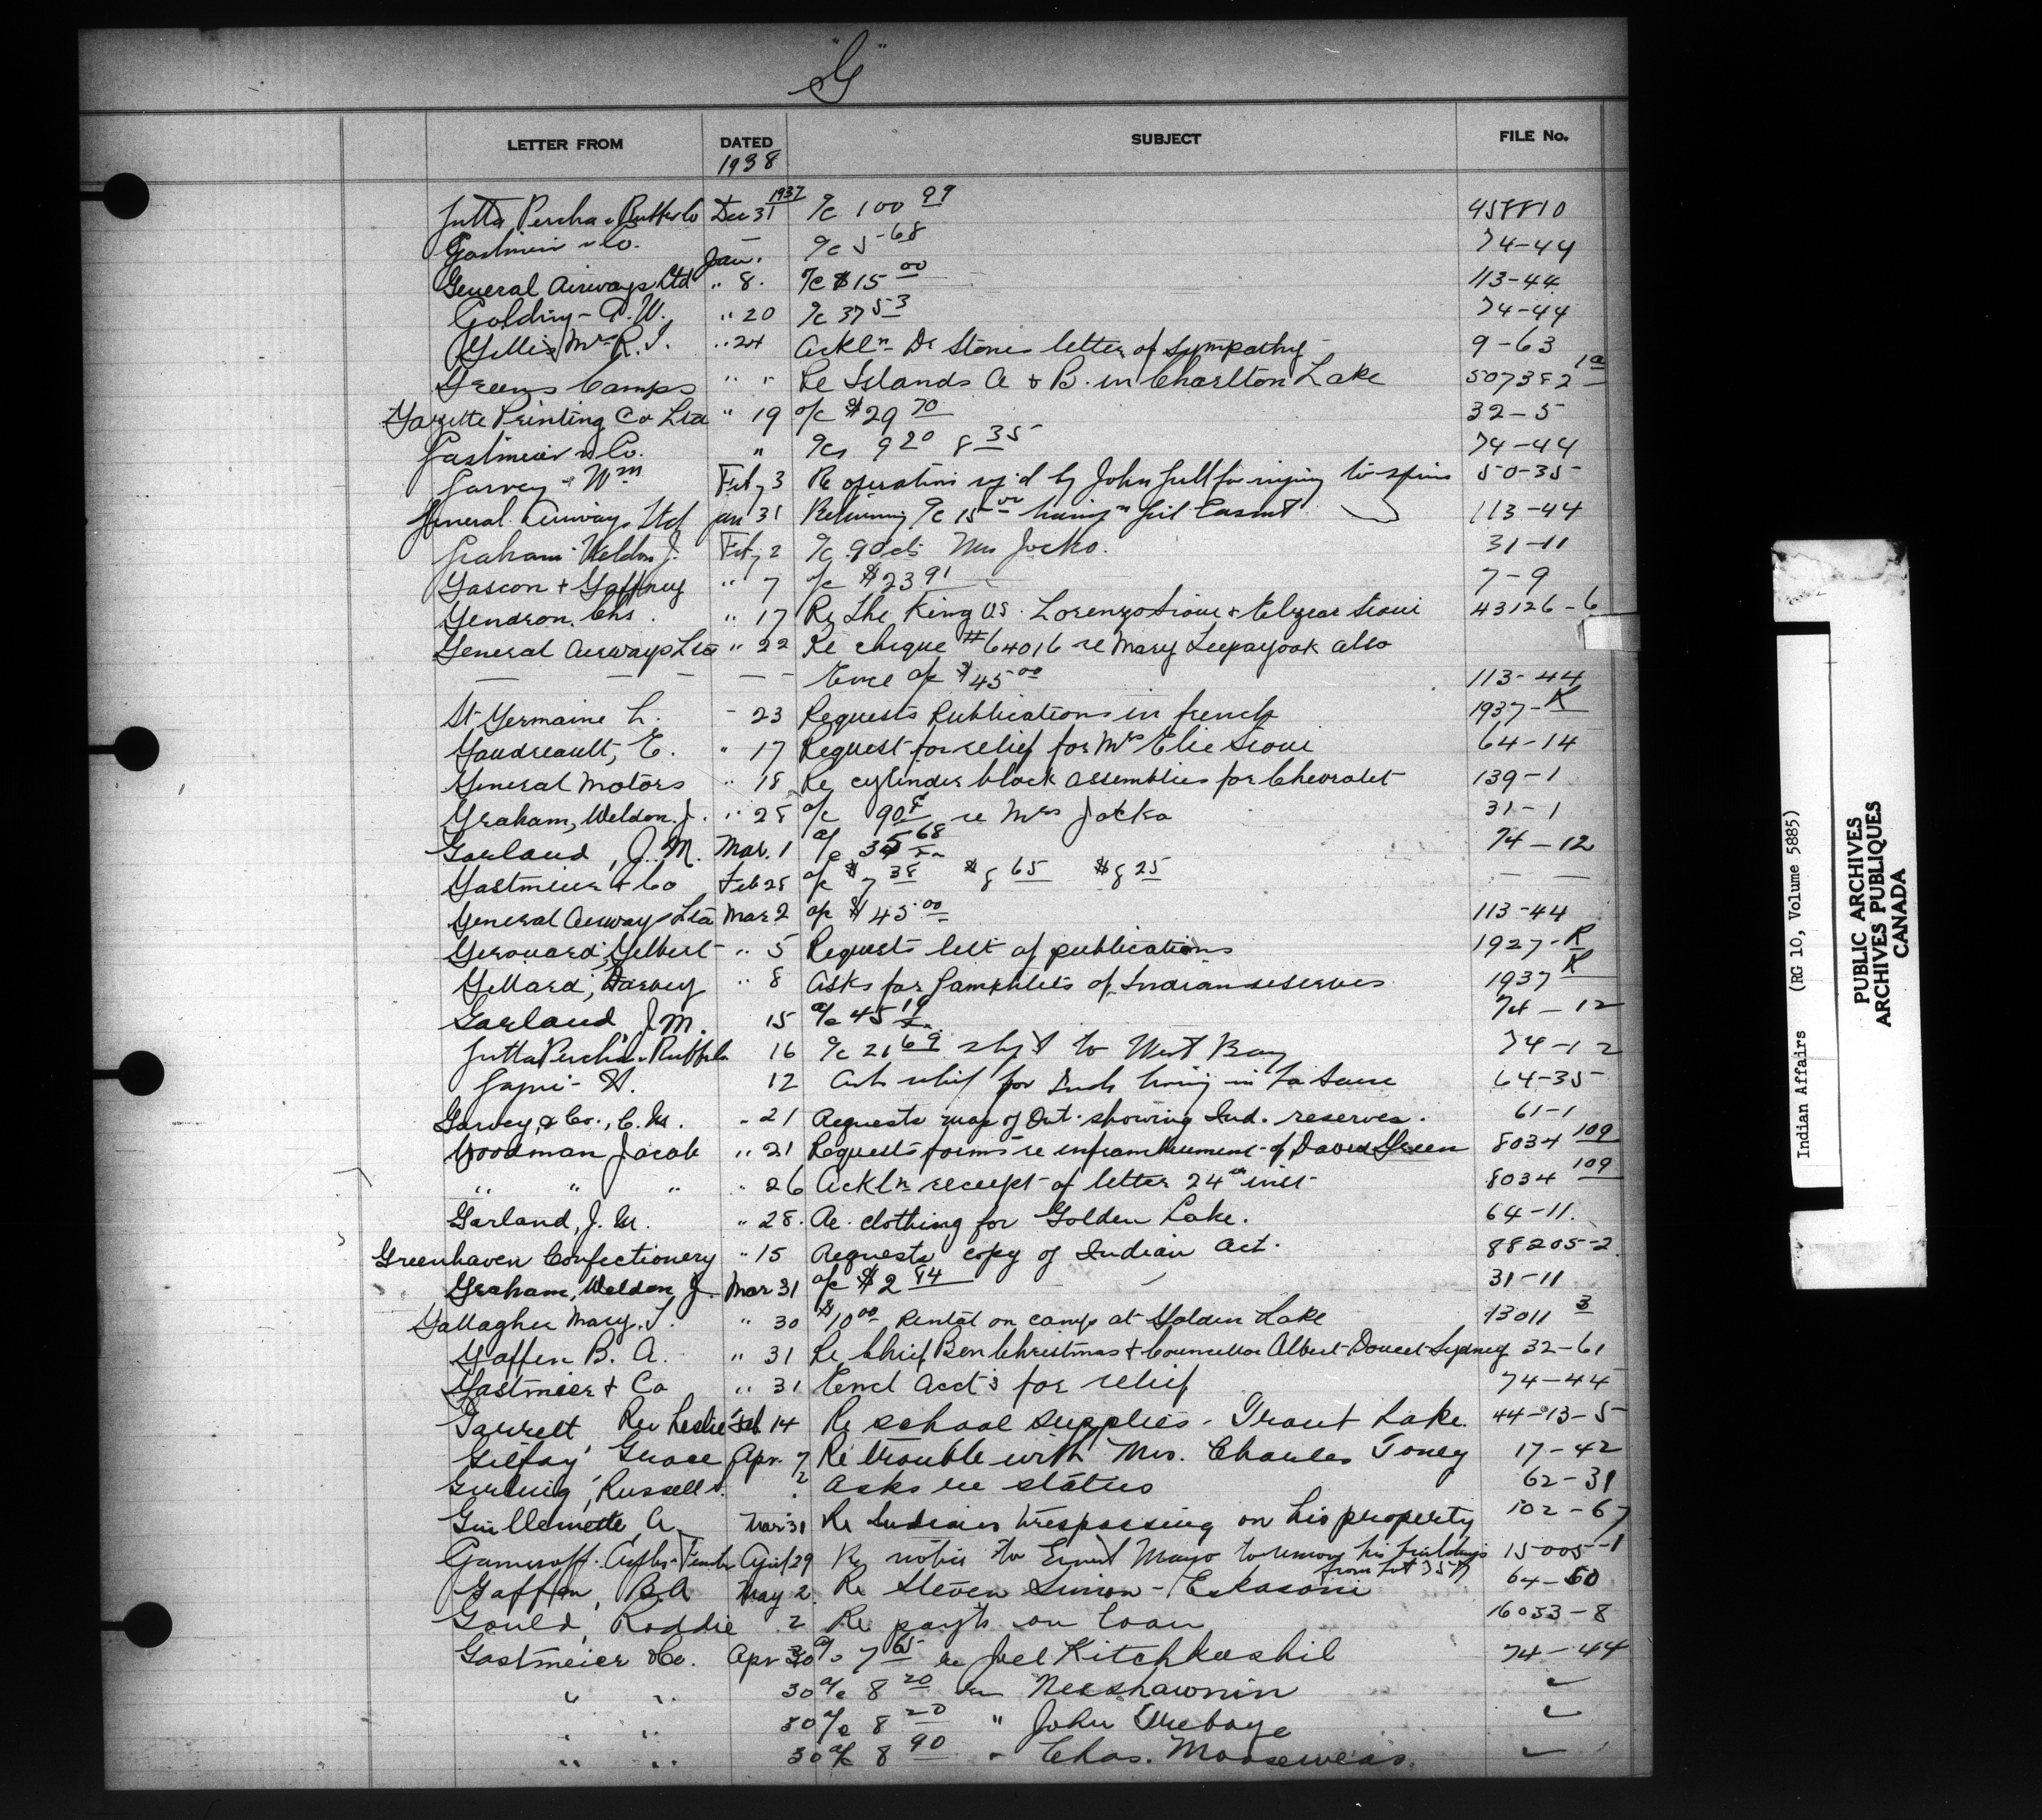 "G"
LETTER FROM DATED SUBJECT FILE No.
1938
Gutta Percha & Rubber Co Dec 31 1937 a/c 100 99 458810
Gastmeier & Co. — a/c 5-68 74-44
Jan.
General Airways Ltd " 8. a/c $15 00 113-44
Golding - A.W. " 20 a/c 37 53 74-44
Gillis Mrs R. J. " 24 Ackln Dr Stones letter of sympathy 9-63
Greens Camps " " Re Islands A & B. in Charlton Lake 507382 1a
Gazette Printing Co Ltd " 19 a/c $29 70 32-5
Gastmeier & Co. " a/cs 9 20 8 35 74-44
Garvey - Wm Feby 3 Re operation by John Gull for injury to spine 50-35
General Airways Ltd Jan 31 Returning a/c 15 00 113-44
Graham Weldon J. Feby 2 a/c 90cts Mrs Jocko. 31-11
Gascon & Gaffney " 7 a/c $23 91 7-9
Gendron, Chs. " 17 Re The King vs. Lorenzo Sioui & Elzear Sioui 43126-6
General Airways Ltd " 22 Re cheque #64016 re Mary Leepayook also
— — — — — Encl a/c $45 00 113-44
St-Germaine L. - 23 Requests Publications in french 1937-K
Gaudreault, E. " 17 Request for relief for Mrs Elie Sioui 64-14
General Motors " 18 Re cylinder block assemblies for Chevrolet 139-1
Graham, Weldon J. " 28 a/c 90¢ re Mrs Jocko 31-1
Garland, J. M. Mar. 1 a/c 35 68 74-12
Gastmeier & Co Feb 28 a/c $7 38 $8 65 $8 25 — —
General Airways Ltd Mar 2 a/c $45 00 113-44
Gerouard, Gilbert " 5 Requests list of publications 1927-R
Gillard, Harvey " 8 Asks for Pamphlets of Indian reserves 1937 K
Garland J.M. 15 a/c 45 19 74-12
Gutta Percha & Rubber 16 a/c 21 69 shp'd to West Bay 74-12
12 Ask relief for Inds living in La Sarre 64-35
Garvey & Co., C. M. " 21 Requests map of Ont. showing Ind. reserves. 61-1
Goodman Jacob " 21 Requests forms re enfranchisement of David Green 8034 109
" " " " 26 Ackln receipt of letter 24th inst 8034 109
Garland, J. M. " 28. Re. clothing for Golden Lake. 64-11.
Greenhaven Confectionery " 15 Requests copy of Indian Act. 88205-2
Graham, Weldon J. Mar 31 a/c $2 84 31-11
Gallagher Mary. T. " 30 $10 00 Rental on camp at Golden Lake 13011 3
Gaffen B. A. " 31 Re Chief Ben Christmas & Councillor Albert Doucet Sydney 32-61
Gastmeier & Co " 31 Encl Acct's for relief 74-44
Garrett Rev Leslie Feb 14 Re school supplies - Trout Lake. 44-13-5
Gilfoy, Grace Apr. 7 Re trouble with Mrs. Charles Toney 17-42
Girling, Russell " 2 asks re status 62-31
Guillemette A. Mar 31 Re Indians trespassing on his property 102-67
April 29 Re notice to Ernest Mayo to remove his buildings 15005-1
from lot 357
Gaffen, B.A May 2. Re Steven Simon - Eskasoni 64-60
Gould, Roddie 2 Re payt's on loan 16053-8
Gastmeier & Co. Apr 30 a/c 7 65 re Joel Kitchkeshik 74-44
" " 30 a/c 8 20 re Neeshawnin "
" " 30 a/c 8 20 " John "
" " 30 a/c 8 90 " Chas. Mooseweas. "
Indian Affairs (RG 10, Volume 5885)
PUBLIC ARCHIVES
ARCHIVES PUBLIQUES
CANADA